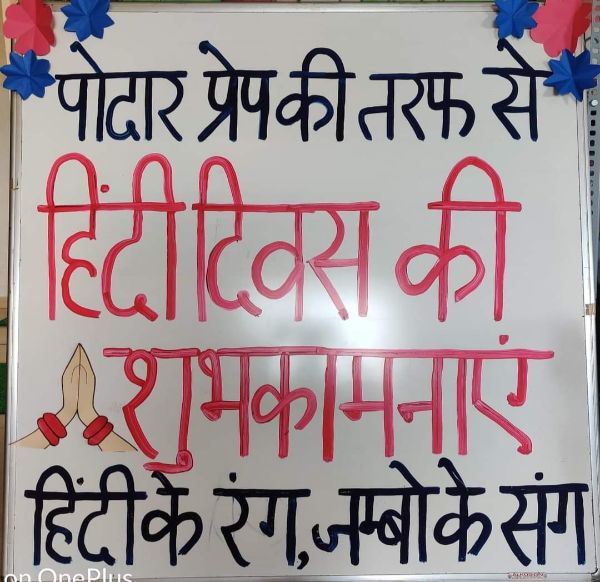 पोदार प्रेप की तरफ से
हिंदी दिवस की
शुभकामनाएं
हिंदी के रंग, जम्बो के संग
on OnePlus